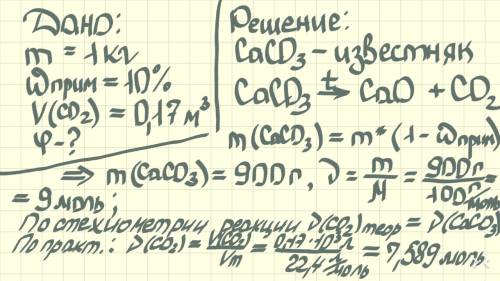 Дано:
m = 1 кг
ωприм = 10%
V(CO₂) = 0,17 м³
φ-?
Решение:
CaCO₃ - известняк
CaCO₃ t→ CaO + CO₂
m(CaCO₃) = m*(1-ωприм)
⇒ m(CaCO₃) = 900г, ν = m/M = 900г/100г/моль =
= 9 моль;
По стехиометрии реакции ν(CO₂)теор = ν(CaCO₃)
По практ.: ν(CO₂) = V(CO₂)/Vm = 0,17*10³л/22,4 л/моль = 7,589 моль.